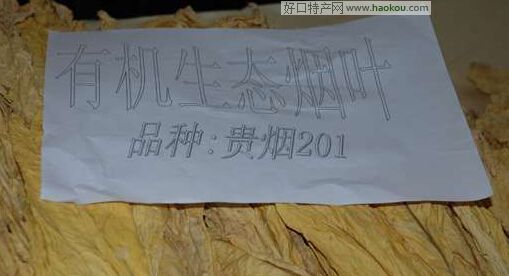 好口特产网
www.haokou.com
有机生态烟叶
品种:贵烟201